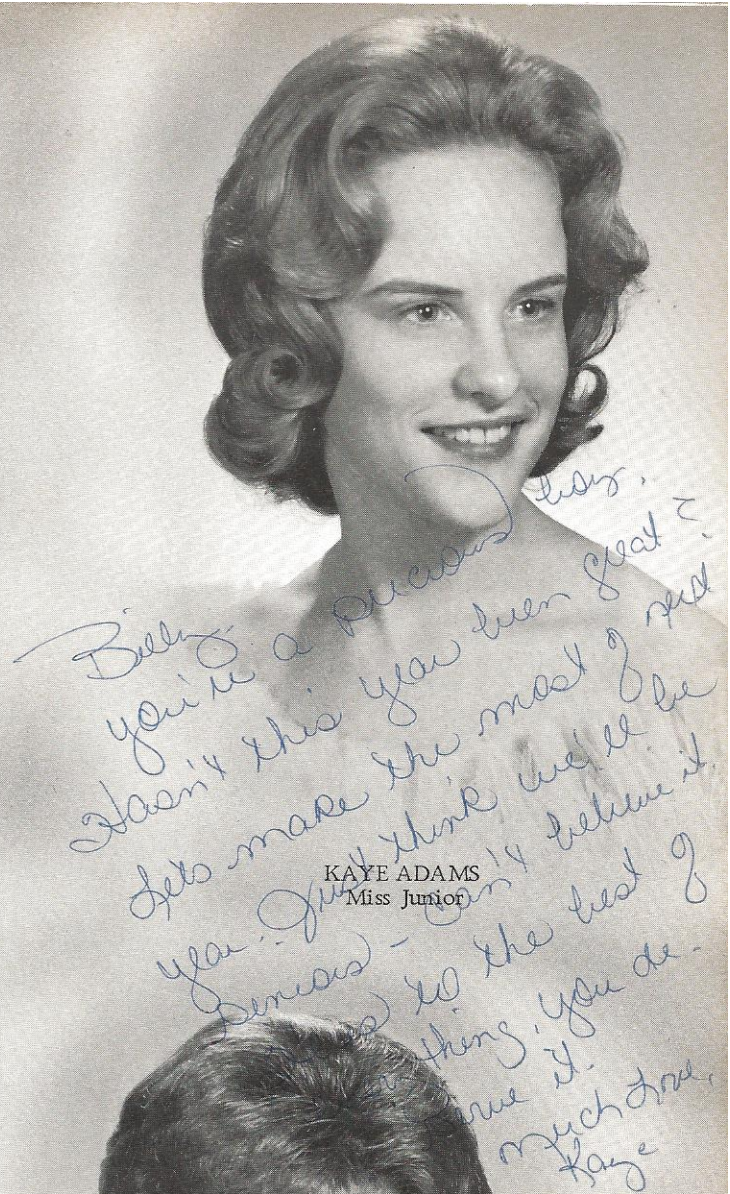 Billy,
you're a precious boy.
Hasn't this year been great?
Lets make the most of next
year. Just think we'll be
Seniors - Can't believe it.
to the best of
thing, you de-
serve it.
Much Love,
Kaye
KAYE ADAMS
Miss Junior